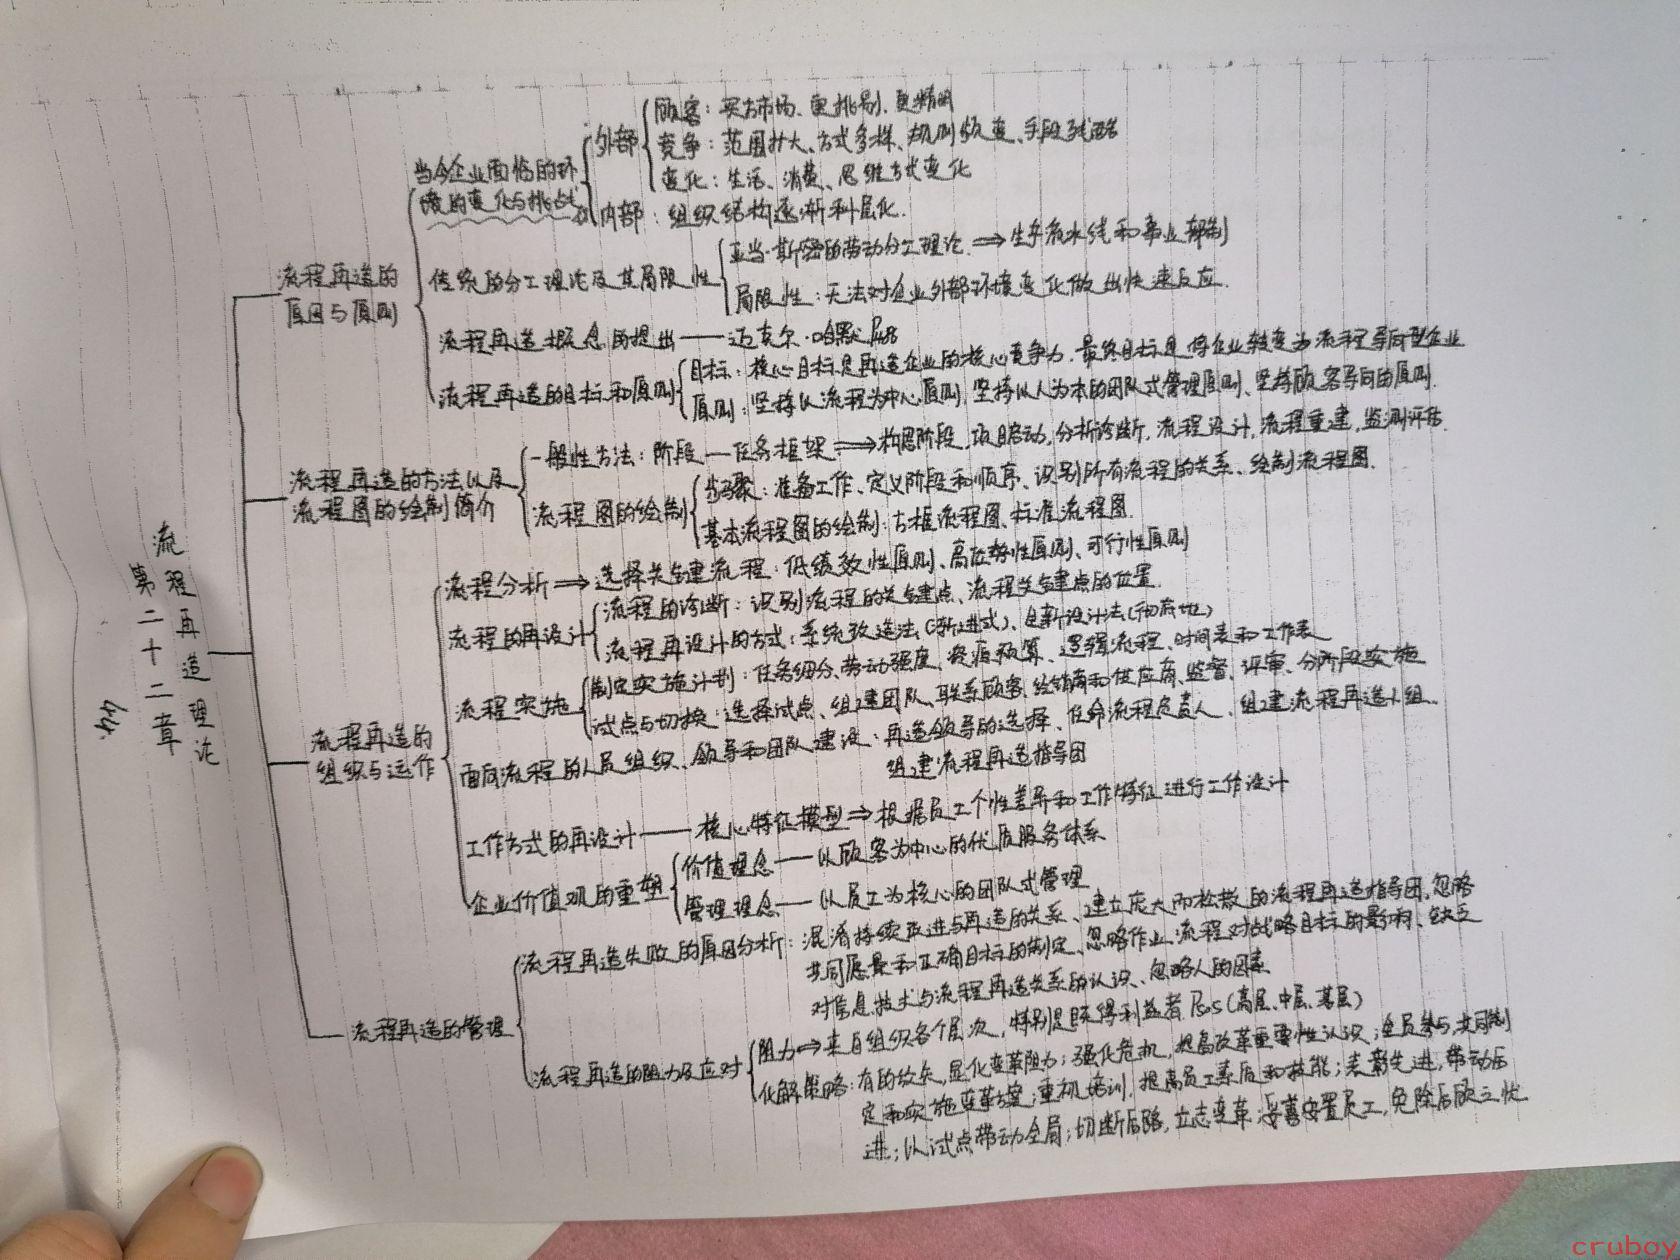 第二十二章
流程再造理论
44
流程再造的
原因与原则
当今企业面临的环
境的变化与挑战
外部
顾客：买方市场、更挑剔、更精明
竞争：范围扩大、方式多样、规则频变、手段战略
变化：生活、消费、思维方式变化
内部：组织结构逐渐科层化.
传统的分工理论及其局限性
亚当·斯密的劳动分工理论 ⇒ 生产流水线和事业部制
局限性：无法对企业外部环境变化做出快速反应.
流程再造概念的提出——迈克尔·哈默
流程再造的目标和原则
目标：核心目标是再造企业的核心竞争力.最终目标是使企业转变为流程导向型企业
原则：坚持以流程为中心原则、坚持以人为本的团队式管理原则、坚持顾客导向的原则.
流程再造的方法以及
流程图的绘制简介
一般性方法：阶段—任务框架⇒构思阶段、项目启动、分析诊断、流程设计、流程重建、监测评估.
流程图的绘制
步骤：准备工作、定义阶段和顺序、识别所有流程的关系、绘制流程图.
基本流程图的绘制：方框流程图、标准流程图.
流程再造的
组织与运作
流程分析⇒选择关键流程：低绩效性原则、高位势性原则、可行性原则
流程的再设计
流程的诊断：识别流程的关键点、流程关键点的位置.
流程再设计的方式：系统改造法(渐进式)、全新设计法
流程实施
制定实施计划：任务细分、劳动强度、资源预算、逻辑流程、时间表和工作表
试点与切换：选择试点、组建团队、联系顾客、经销商和供应商、监督、评审、分阶段实施
面向流程的人员组织、领导和团队建设：再造领导的选择、任命流程负责人、组建流程再造小组、
组建流程再造指导团
工作方式的再设计——核心特征模型⇒根据员工个性差异和工作特征进行工作设计
企业价值观的重塑
价值理念——以顾客为中心的优质服务体系
管理理念——以员工为核心的团队式管理
流程再造的管理
流程再造失败的原因分析：混淆持续改进与再造的关系、建立庞大而松散的流程再造指导团、忽略
共同愿景和正确目标的制定、忽略作业流程对战略目标的影响、缺乏
对信息技术与流程再造关系的认识、忽略人的因素
流程再造的阻力及应对
阻力⇒来自组织各个层次，特别是既得利益者 (高层、中层、基层)
化解策略：有的放矢，显化变革阻力；强化危机，提高改革重要性认识；全员参与，共同制
定和实施变革方案；重视培训，提高员工素质和技能；表彰先进，带动后
进；以试点带动全局；切断后路，立志变革；妥善安置员工，免除后顾之忧
cruboy